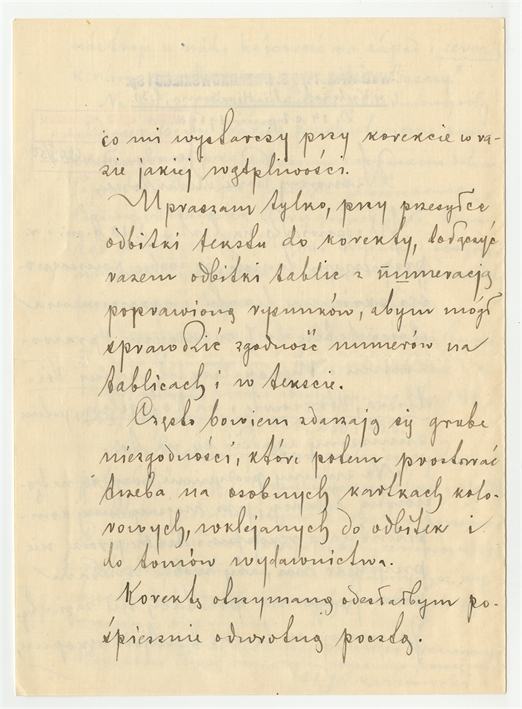 co mi wystarczy przy korekcie w ra-
zie jakiej wątpliwości.
Upraszam tylko, przy przesyłce
odbitki tekstu do korekty, dołączyć
razem odbitki tablic z numeracją
poprawioną rysunków, abym mógł
sprawdzić zgodność numerów na
tablicach i w tekście.
Często bowiem zdarzają się grube
niezgodności, które potem prostować
trzeba na osobnych kartkach kolo-
rowych, wklejanych do odbitek i
do tomów wydawnictwa.
Korektę otrzymaną odesłałbym po-
śpiesznie odwrotną pocztą.